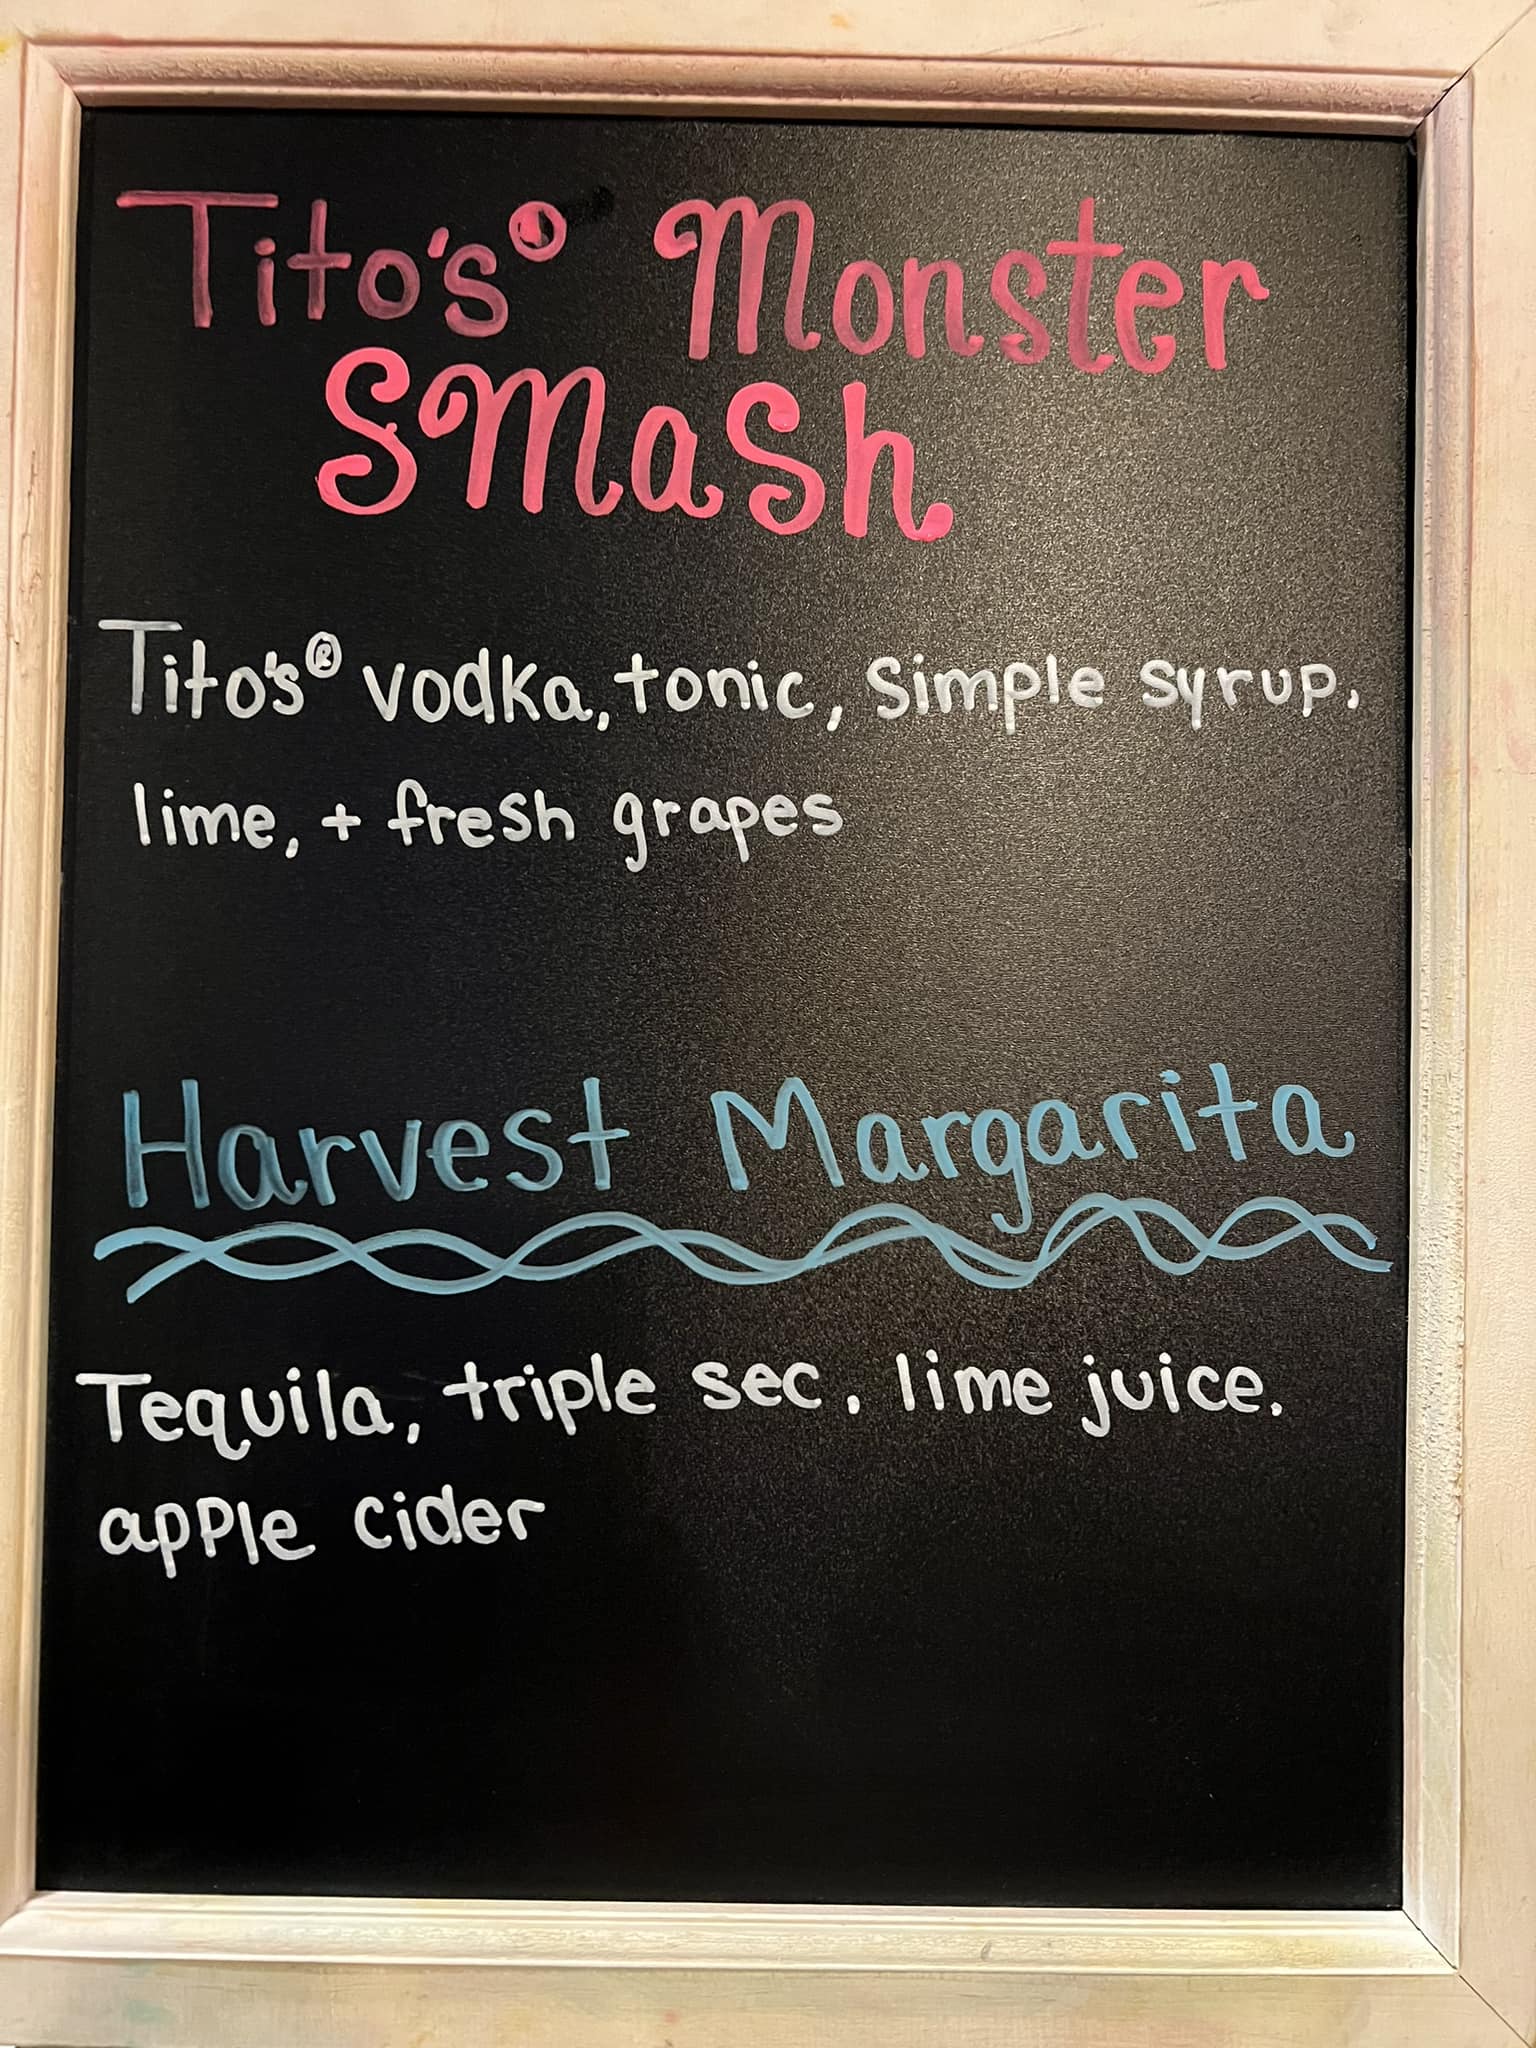 Tito's® Monster
Smash
Tito's® vodka, tonic, simple syrup,
lime, + fresh grapes
Harvest Margarita
Tequila, triple sec, lime juice,
apple cider